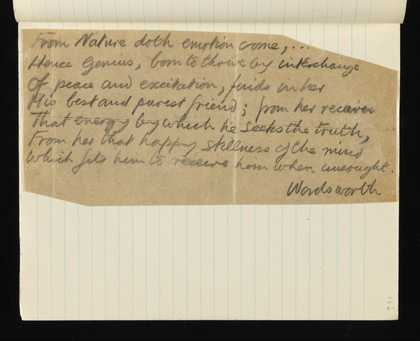 From Nature doth emotion come, ...
Hence Genius, born to thrive by interchange
Of peace and excitation, finds in her
His best and purest friend; from her receives
That energy by which he seeks the truth,
From her that happy stillness of the mind
Which fits him to receive him when unsought.
Wordsworth